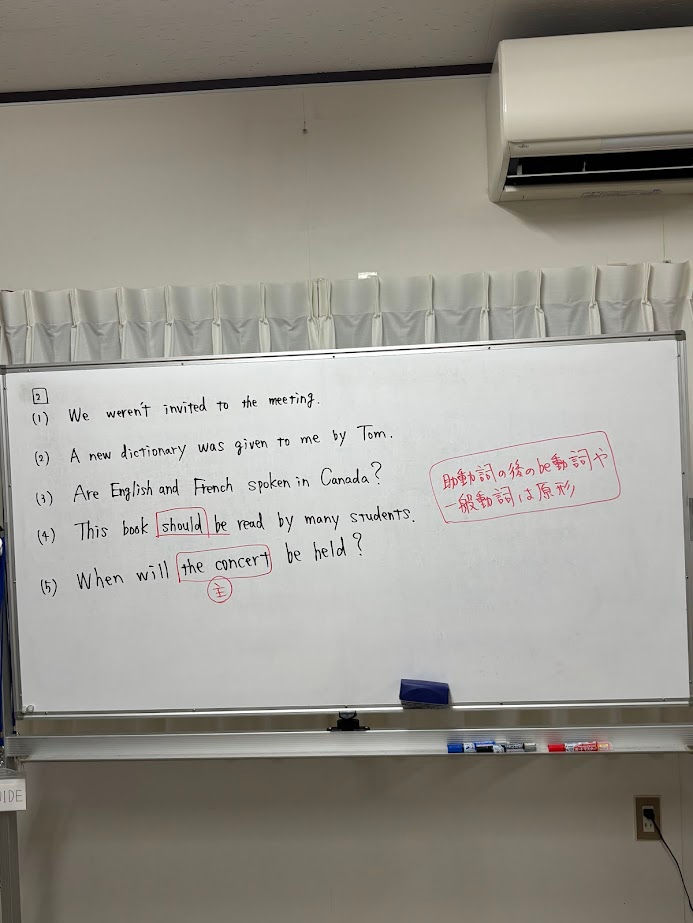 2
(1) We weren't invited to the meeting.
(2) A new dictionary was given to me by Tom.
(3) Are English and French spoken in Canada?
(4) This book should be read by many students.
(5) When will the concert be held?
主
助動詞の後のbe動詞や
一般動詞は原形
UIDE